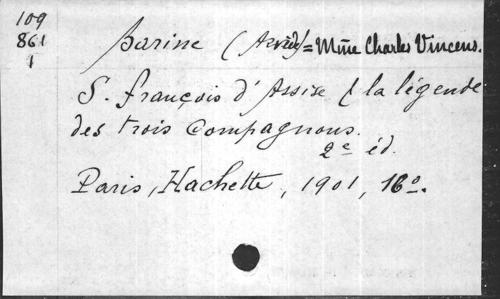 109
861
1
Barine (Arvède) = Mme Charles Vincens.
S. François d'Assise & la légende
des trois Compagnons.
2e éd.
Paris, Hachette, 1901, 16o.